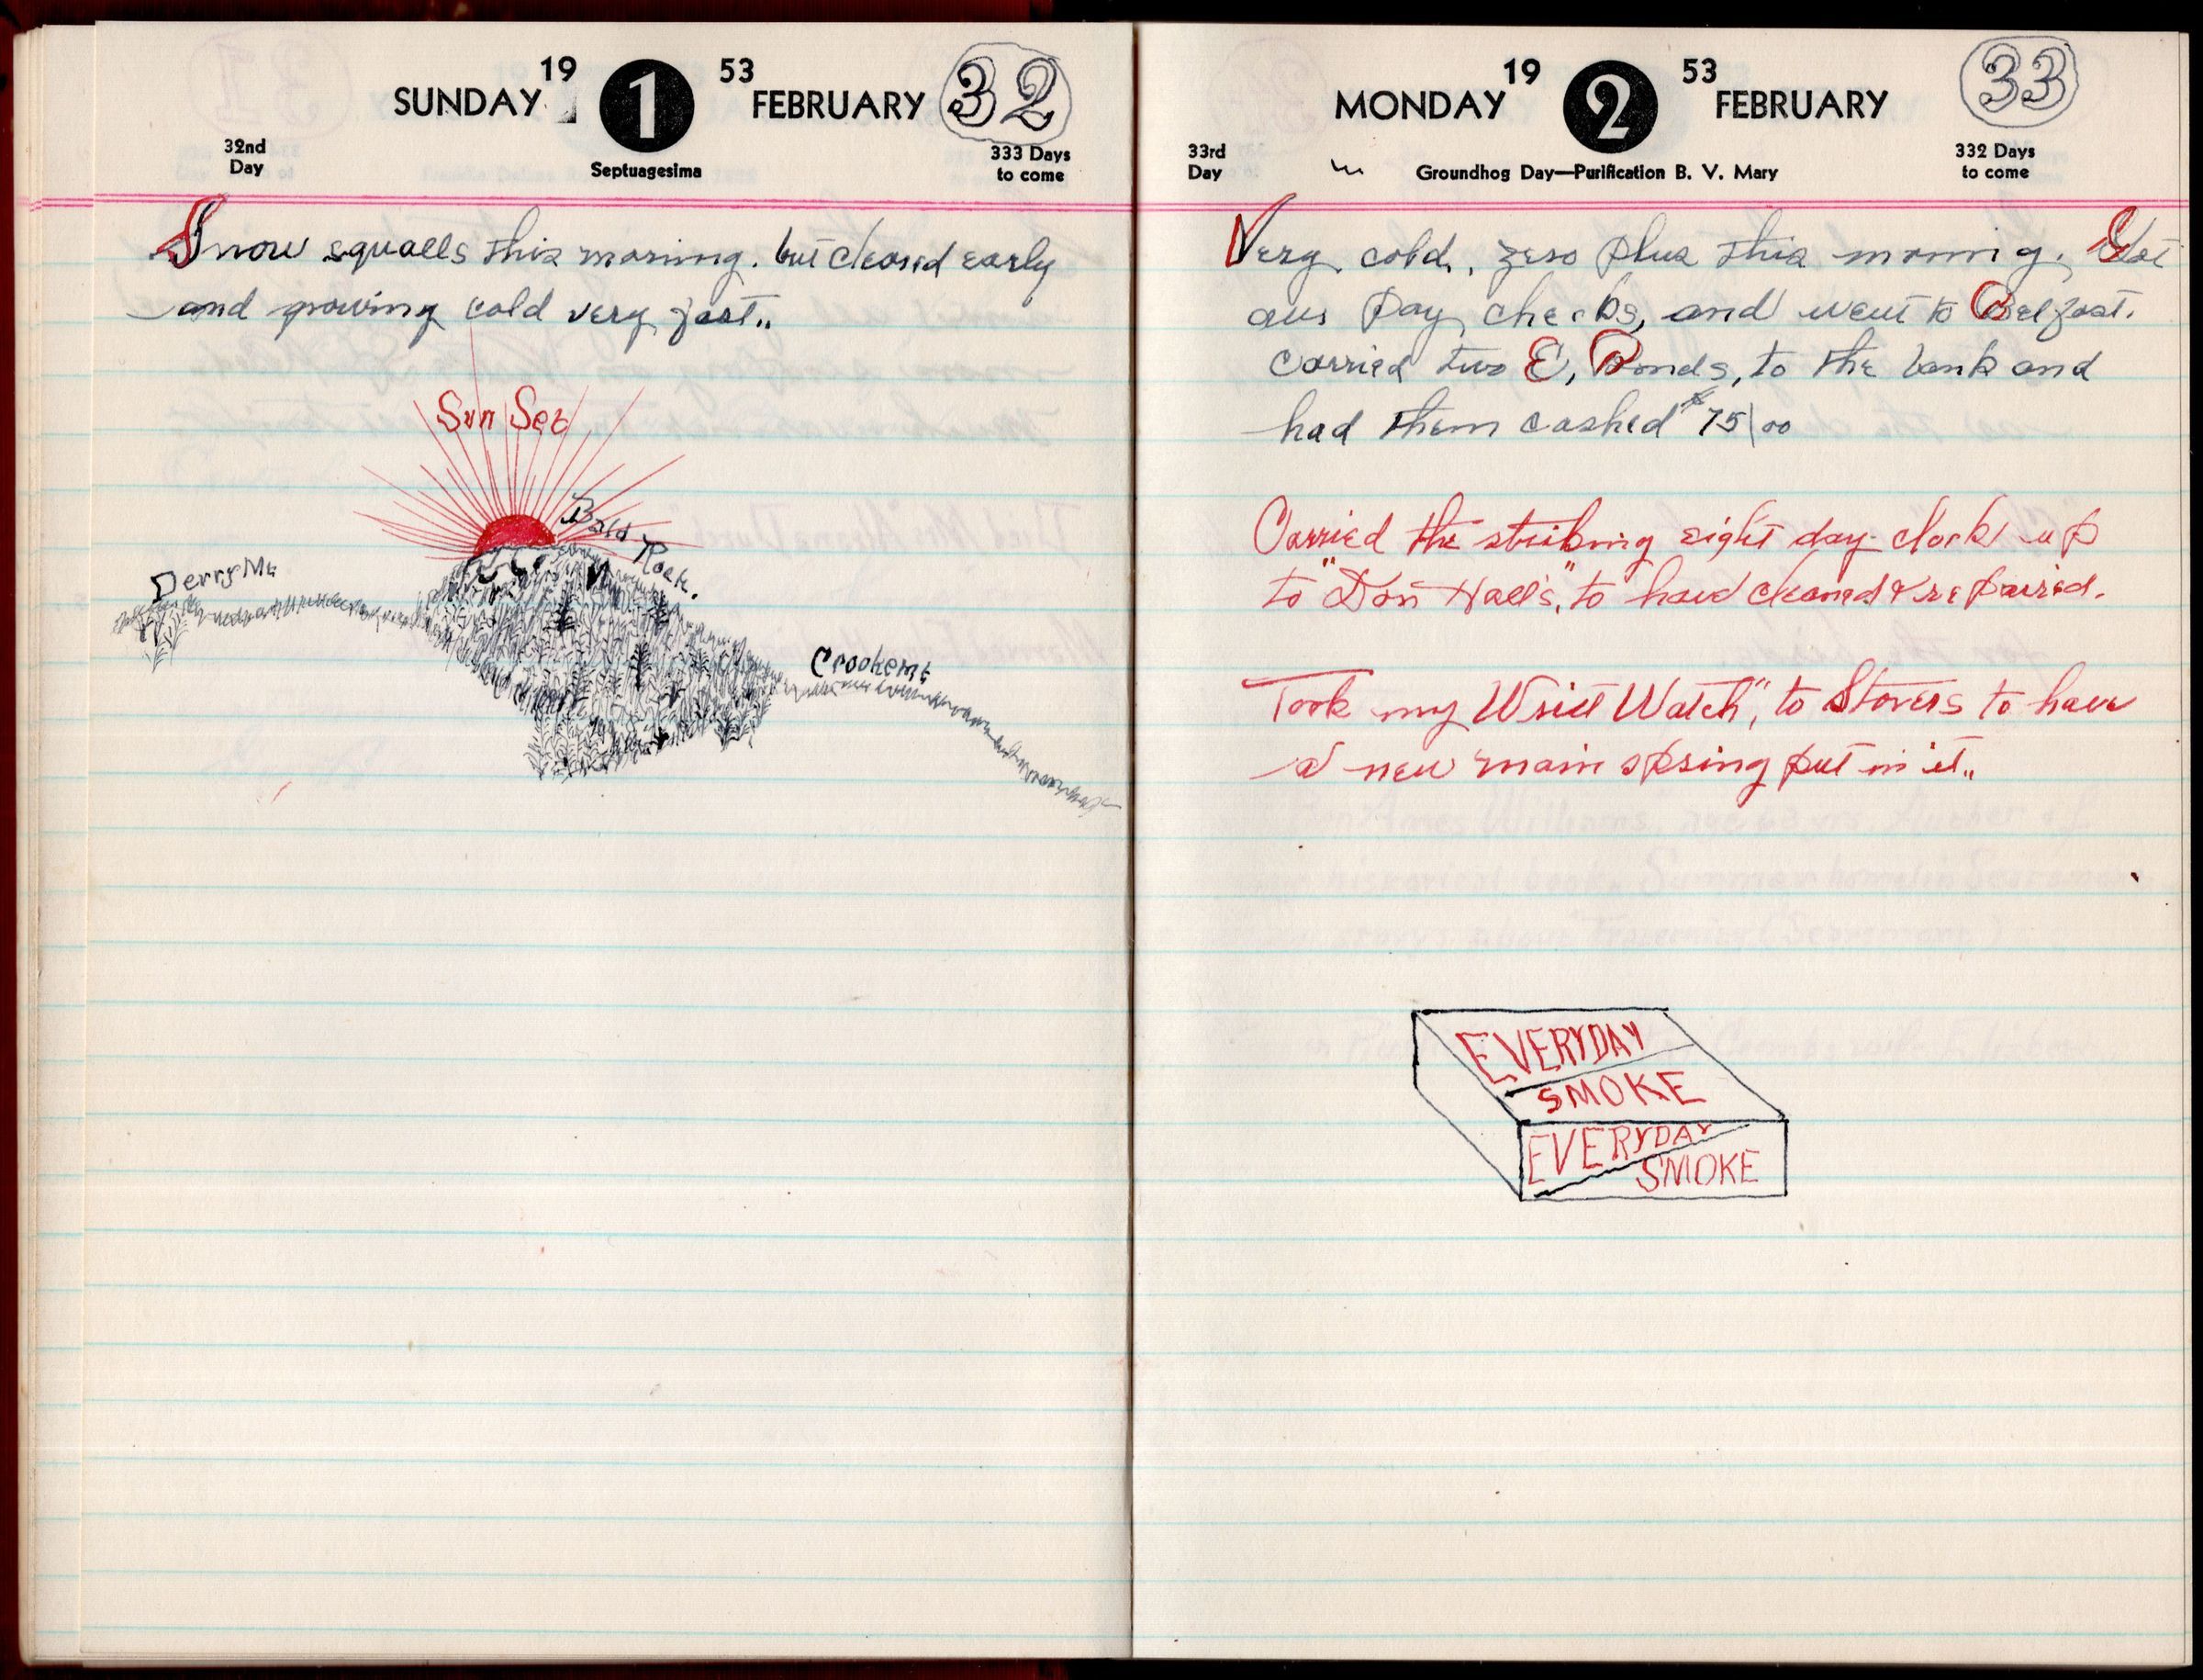 SUNDAY 19 1 53 FEBRUARY 32
32nd Day
Septuagesima
333 Days to come
Snow squalls this morning. but cleared early
and growing cold very fast..
Sun Set
Bald Rock.
Derry Mt
Crooker Mt
MONDAY 19 2 53 FEBRUARY 33
33rd Day
Groundhog Day—Purification B. V. Mary
332 Days to come
Very cold, zero plus this morning. Got
our pay checks, and went to Belfast.
Carried two E, Bonds, to the bank and
had them cashed $75|00
Carried the striking eight day clock up
to "Don Hall's," to have cleaned & repaired.
Took my Wrist Watch", to Stovers to have
a new main spring put in it..
EVERYDAY
SMOKE
EVERYDAY
SMOKE